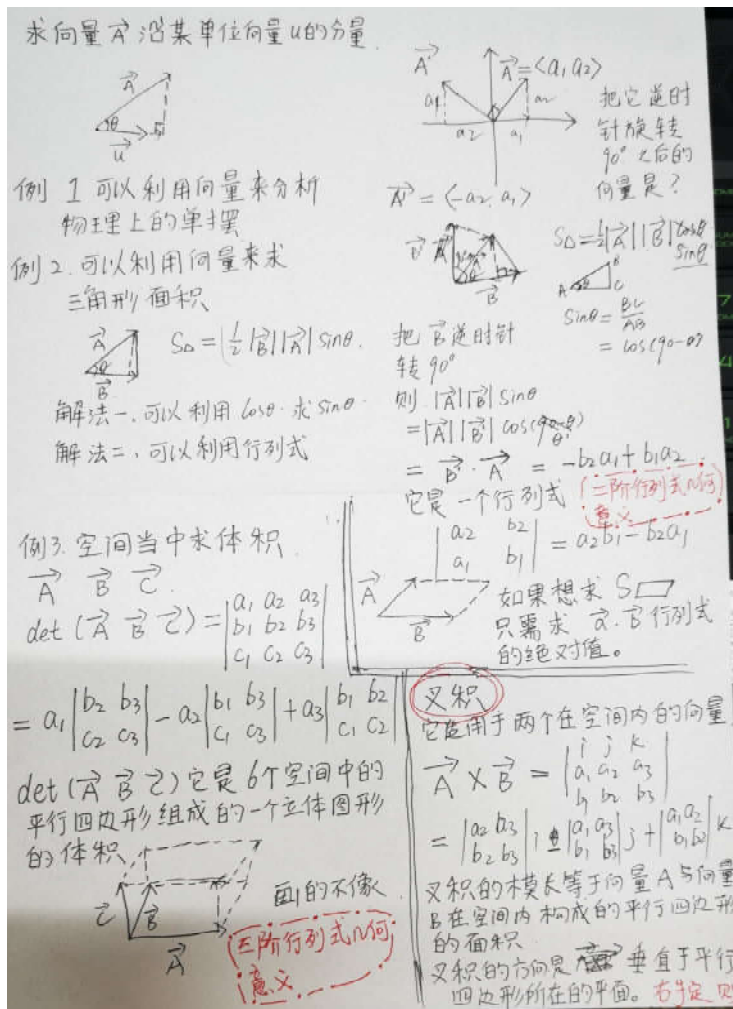 求向量 A 沿某单位向量u的分量.
A
θ
u
例 1 可以利用向量来分析
物理上的单摆
例 2. 可以利用向量来求
三角形面积
A
θ
B
S△ = 1/2 |B||A| sinθ.
解法一、可以利用 cosθ. 求 sinθ.
解法二、可以利用行列式
A'
A=<a1 a2>
a1
a2
a2
a1
把它逆时
针旋转
90° 之后的
向量是?
A' = <-a2, a1>
B'
A
B
S△=1/2|A||B|
sinθ
A
B
C
θ
sinθ = BC/AB
= cos(90-θ)
把 B 逆时针
转 90°
则 |A||B| sinθ
=|A||B'| cos(
θ')
= B' · A = -b2a1 + b1a2
它是一个行列式
(二阶行列式几何
意义
| a2 b2 |
| a1 b1 | = a2b1 - b2a1
A
B
如果想求 S▱
只需求 a. b 行列式
的绝对值。
例3. 空间当中求体积.
A B C.
det (A B C) = | a1 a2 a3 |
| b1 b2 b3 |
| c1 c2 c3 |
= a1 | b2 b3 | - a2 | b1 b3 | + a3 | b1 b2 |
| c2 c3 | | c1 c3 | | c1 c2 |
det (A B C) 它是 6个空间中的
平行四边形组成的一个立体图形
的体积
C
B
A
画的不像
(三阶行列式几何
意义
叉积
它应用于两个在空间内的向量
A × B = | i j k |
| a1 a2 a3 |
| b1 b2 b3 |
= | a2 a3 | i
| a1 a3 | j + | a1 a2 | k
| b2 b3 | | b1 b3 | | b1 b2 |
叉积的模长等于向量 A 与向量
B 在空间内构成的平行四边形
的面积
叉积的方向是
垂直于平行
四边形所在的平面。右手定则